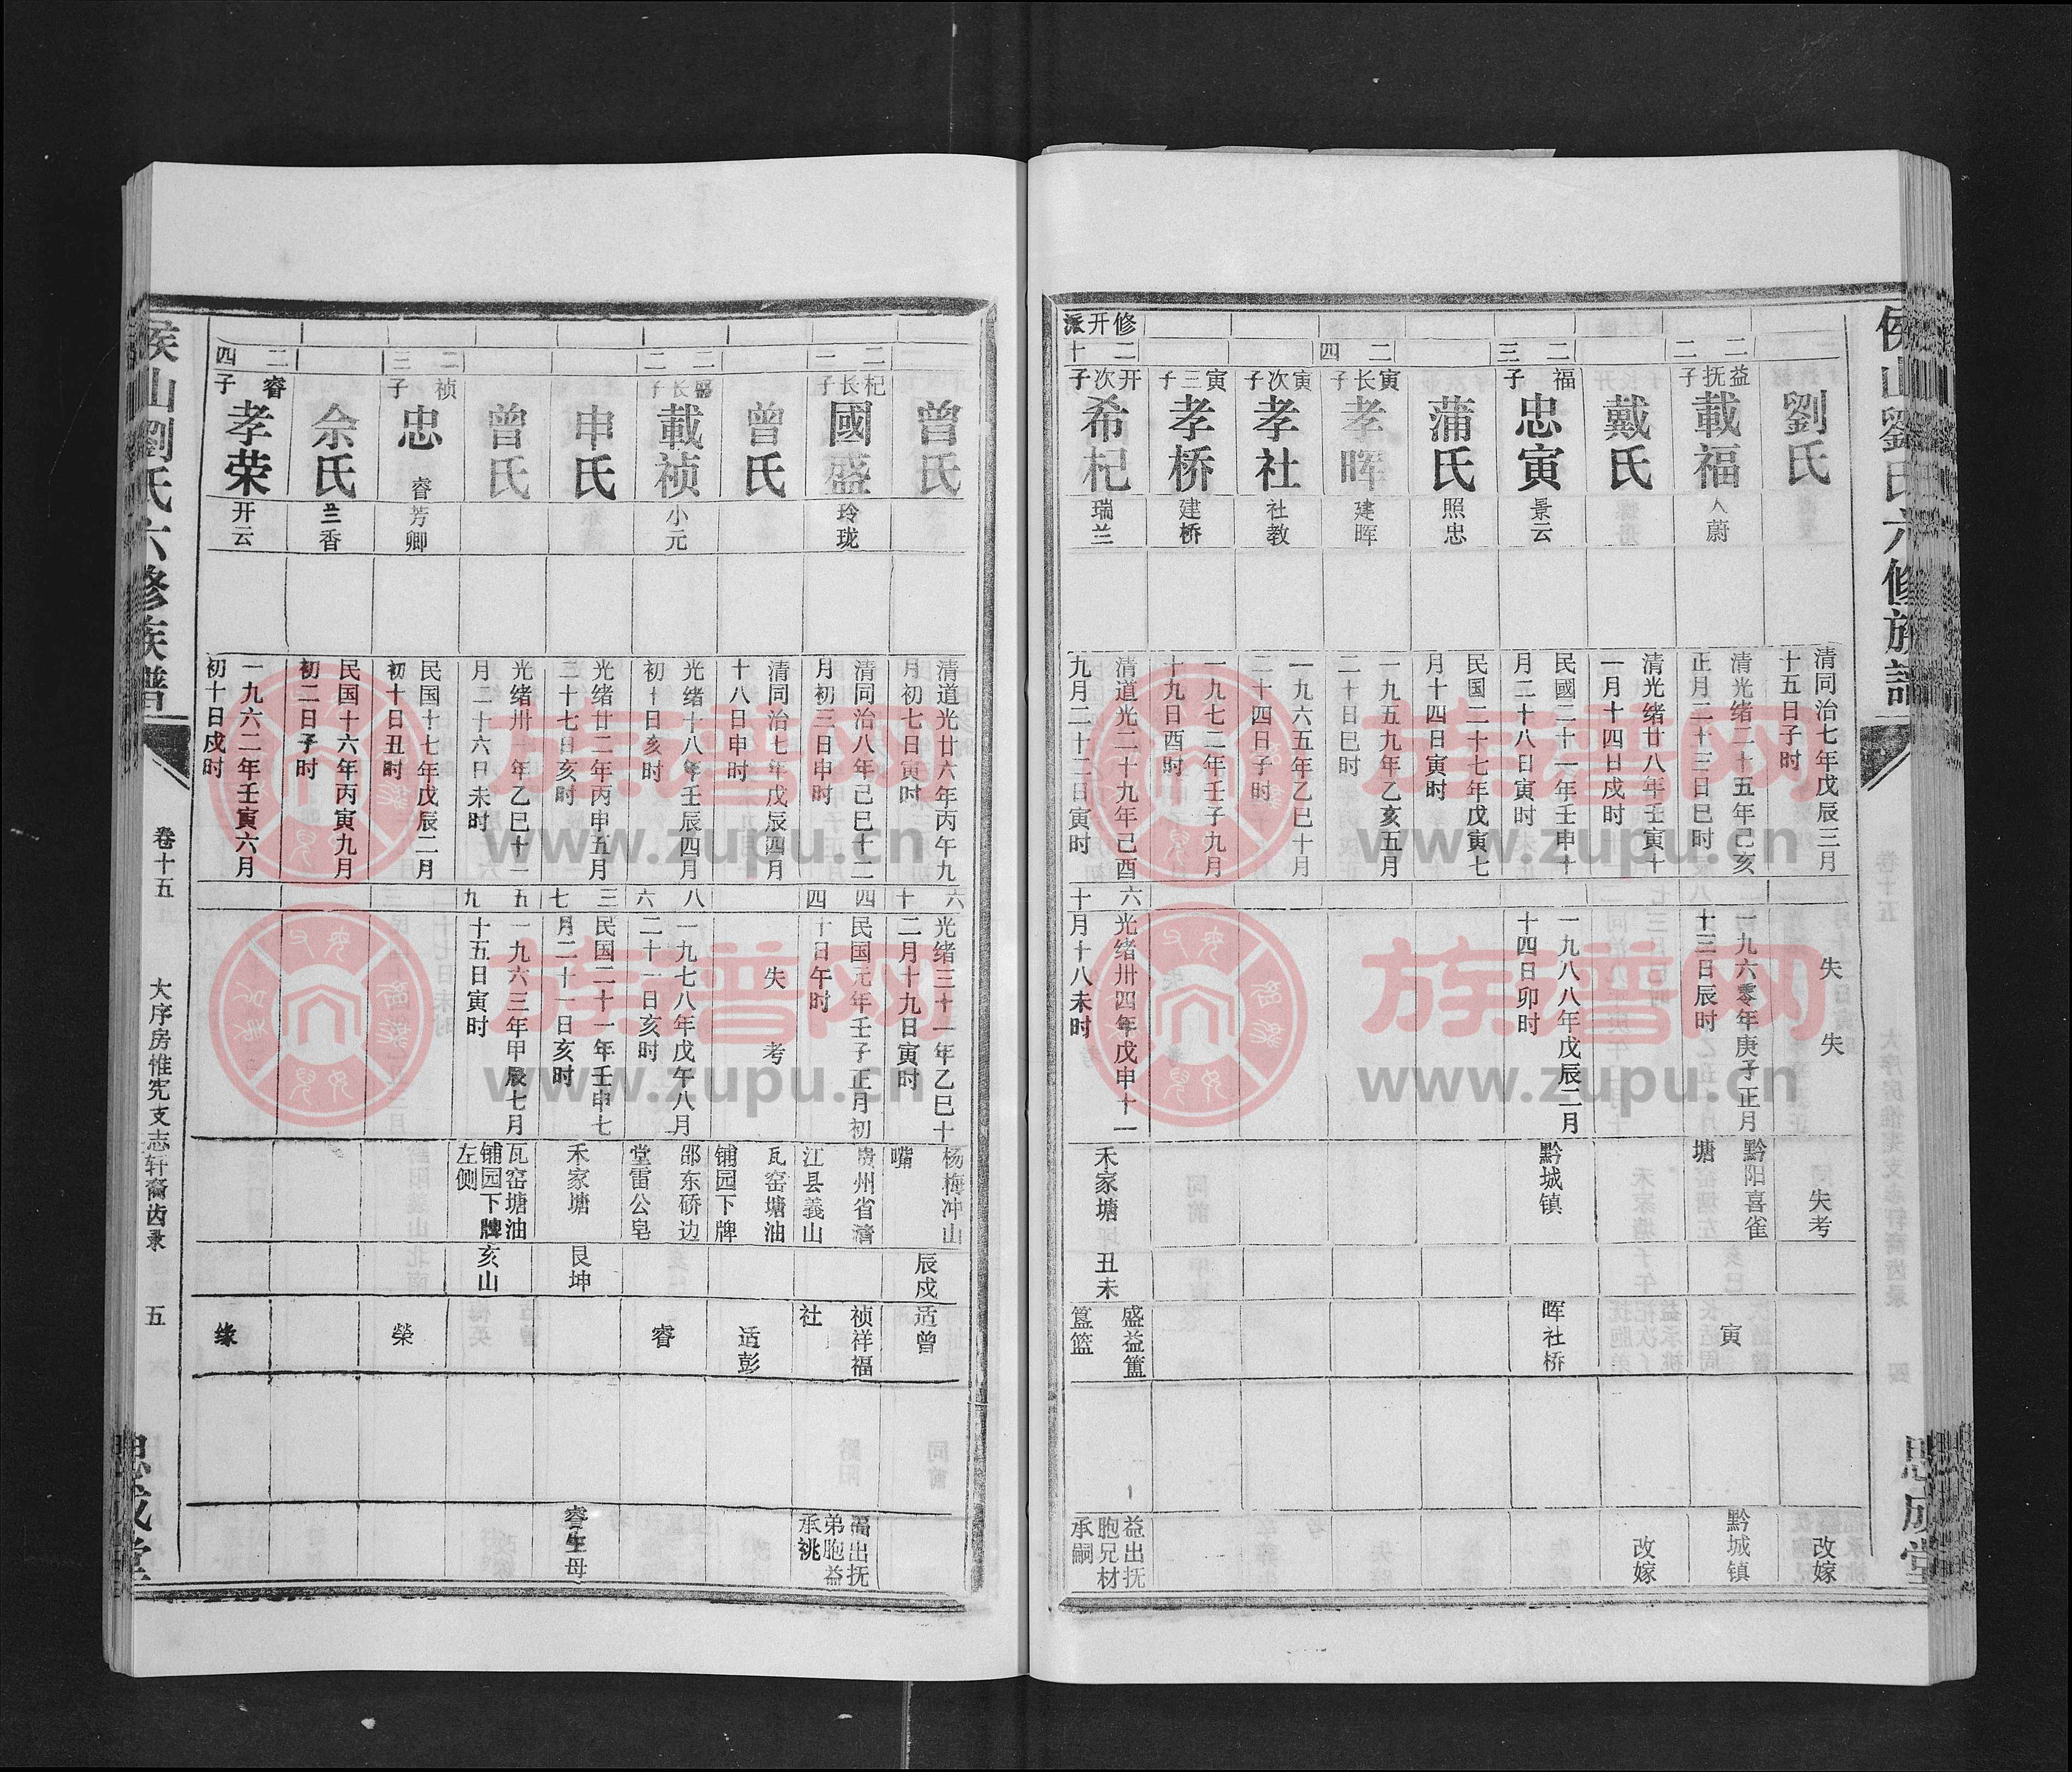 侯山劉氏六修族譜
思成堂
劉氏
清同治七年戊辰三月
十五日子时
失 失
失考
改嫁
二二
益抚子
載福
人蔚
清光绪二十五年己亥
正月二十三日巳时
一九六零年庚子正月
十三日辰时
黔阳喜雀
塘
寅
黔城镇
戴氏
清光绪廿八年壬寅十
一月十四日戍时
改嫁
二三
福子
忠寅
景云
民國二十一年壬申十
月二十八日寅时
一九八八年戊辰二月
十四日卯时
黔城镇
晖社桥
蒲氏
照忠
民国二十七年戊寅七
月十四日寅时
二四
寅长子
孝晖
建晖
一九五九年乙亥五月
二十日巳时
寅次子
孝社
社教
一九六五年乙巳十月
二十四日子时
寅三子
孝桥
建桥
一九七二年壬子九月
十九日酉时
修开派
二十
开次子
希杞
瑞兰
清道光二十九年己酉
九月二十二日寅时
六十
光绪卅四年戊申十一
月十八未时
禾家塘
丑未
盛益簠
簋篮
益出抚
胞兄材
承嗣
曾氏
清道光廿六年丙午九
月初七日寅时
六十
光绪三十一年乙巳十
二月十九日寅时
杨梅冲山
嘴
辰戍
适曾
二一
杞长子
國盛
玲珑
清同治八年己巳十二
月初三日申时
四四
民国元年壬子正月初
十日午时
贵州省濟
江县義山
祯祥福
社
福出抚
弟胞益
承祧
曾氏
清同治七年戊辰四月
十八日申时
失考
瓦窑塘油
铺园下牌
适彭
二二
盛长子
載祯
小元
光绪十八年壬辰四月
初十日亥时
八六
一九七八年戊午八月
二十一日亥时
邵东硚边
堂雷公皂
睿
申氏
光绪廿二年丙申五月
三十七日亥时
三七
民国二十一年壬申七
月二十一日亥时
禾家塘
艮坤
睿生母
曾氏
光绪卅一年乙巳十一
月二十六日未时
五九
一九六三年甲辰七月
十五日寅时
瓦窑塘油
铺园下牌
左侧
亥山
二三
祯子
忠睿
芳卿
民国十七年戊辰二月
初十日丑时
榮
余氏
兰香
民国十六年丙寅九月
初二日子时
二四
睿子
孝荣
开云
一九六二年壬寅六月
初十日戍时
缘
侯山劉氏六修族譜
卷十五
大序房惟宪支志轩裔齿录
五
思成堂
族谱网
www.zupu.cn
族谱网
www.zupu.cn
族谱网
www.zupu.cn
族谱网
www.zupu.cn